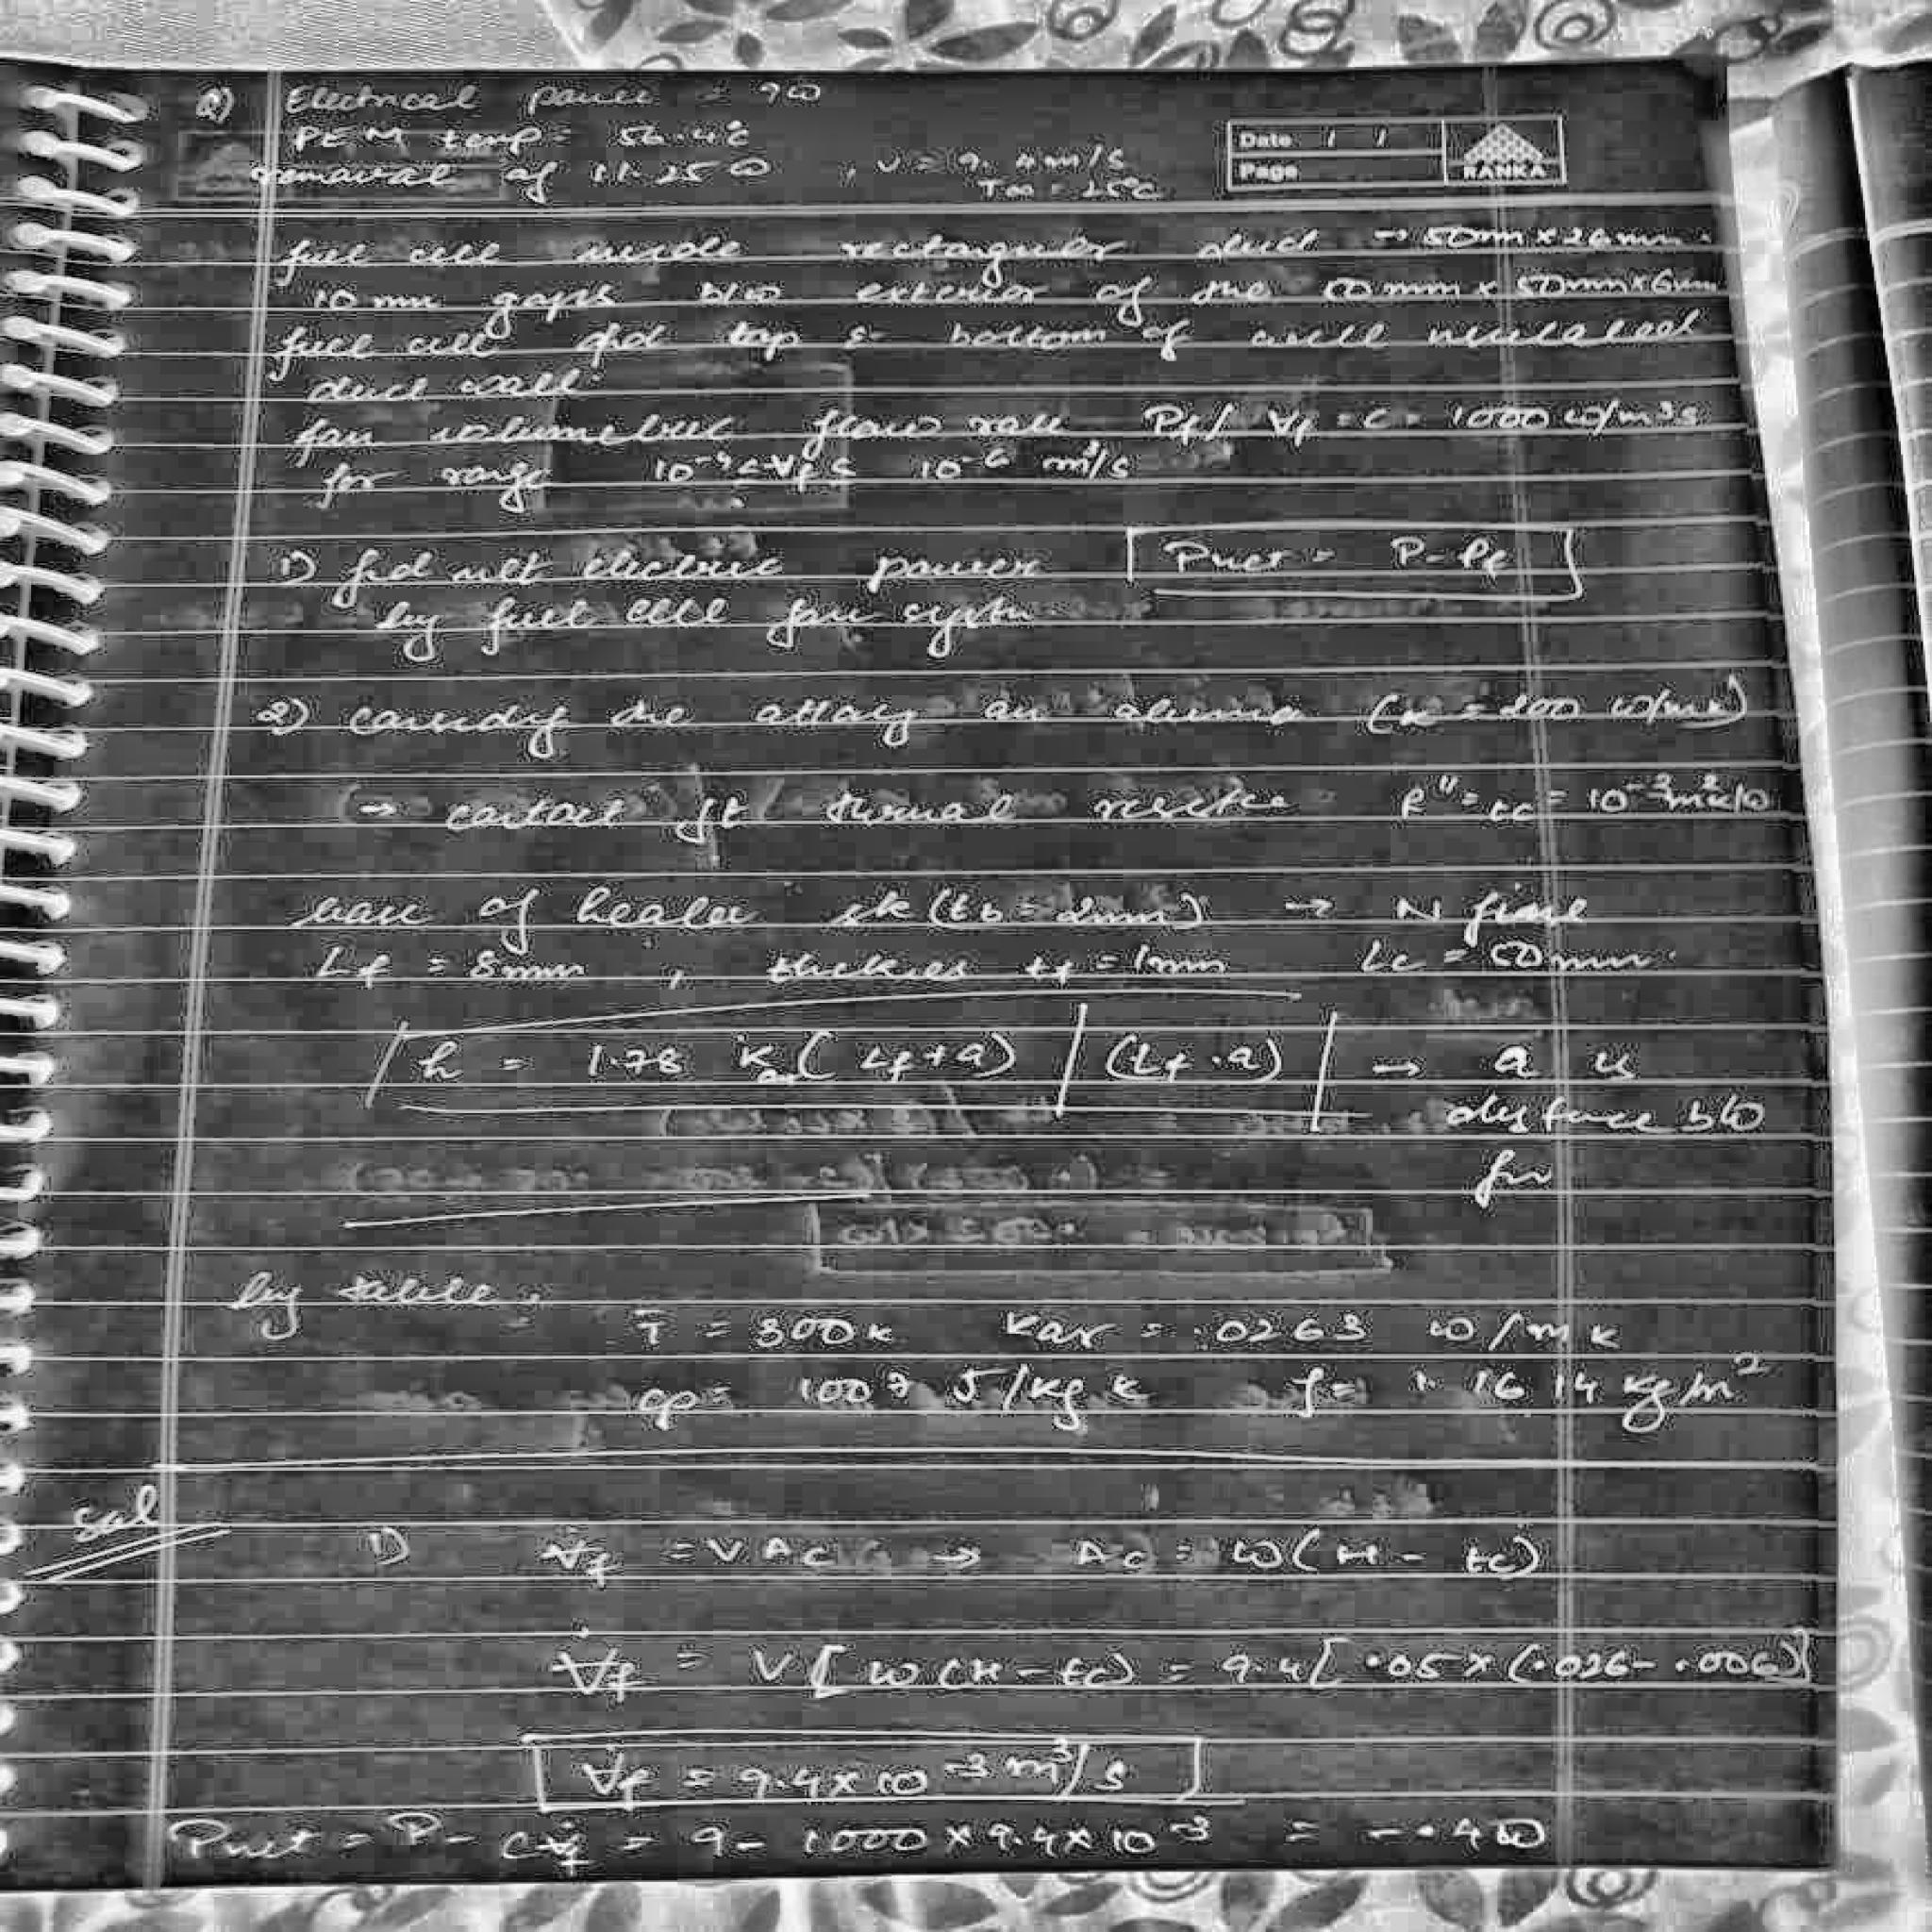 Q) Electrical power = 9W
PEM temp = 56.4°C
removal of 11.25 W , V = 9.4 m/s
T∞ = 25°C
Date / /
Page
RANKA
fuel cell inside rectangular duct → 50mm × 26mm.
10 mm gaps b/w exterior of the 50mm × 50mm × 6mm
fuel cell top & bottom of well insulated
duct wall
fan volumetric flow rate Pf / V̶f = C = 1000 W/m³s
for range 10⁻⁴ < V̶f < m³/s
1) net electric power Pnet = P - Pf
by fuel cell fan
2) (k = 200 W/mk)
→ thermal R" tc = 10⁻³ m²k/W
base of (tb = 2mm) → N
Lf = 8mm , tf = 1mm Lc = 50mm.
h = 1.78 k (Lf + a) / (Lf · a) → a is
b/w
by table,
T̄ = 300k = .0263 W/mk
cp = 1007 J/kg k ρ = 1.1614 kg/m³
sol
1) V̶̇f = VAc → Ac = W(H - tc)
V̶̇f = V[W(H - tc) = 9.4[.05 × (.026 - .006)]
V̶̇f = 9.4 × 10⁻³ m³/s
Pnet = P - CV̶̇f = 9 - 1000 × 9.4 × 10⁻³ = -.4W